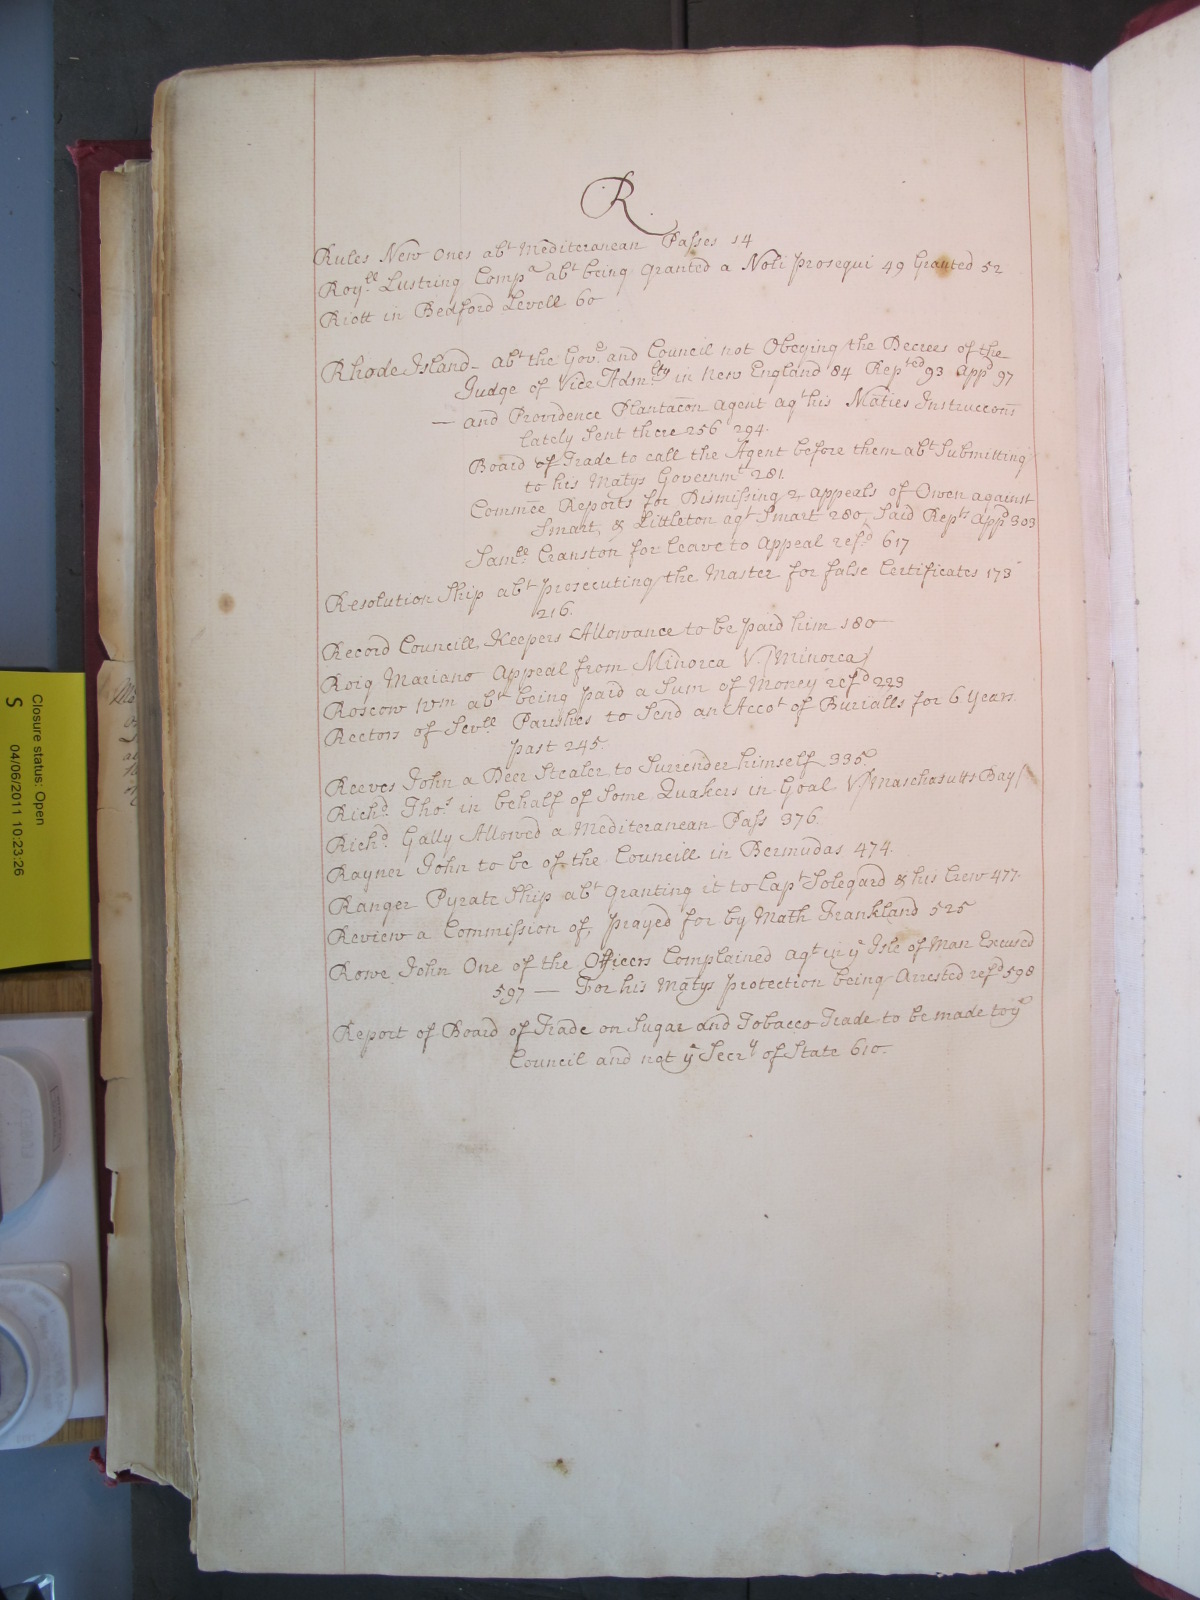 R
Rules New Ones abt Mediteranean Passes 14
Royll Lustring Compa abt being granted a Noli prosequi 49 Granted 52
Riott in Bedford Levell 60
Rhode Island - abt the Govr and Council not Obeying the Decrees of the
Judge of Vice Admlty in New England 84 Repted 93 Appd 97
— and Providence Plantacon Agent agt his Maties Instruccons
lately sent there 256 294.
Board of Trade to call the Agent before them abt Submitting
to his Matys Governmt 281
Commee Reports for Dismissing 2 appeals of Owen against
Smart, & Littleton agt Smart 280, Said Repts Appd 303
Samll Cranston for leave to Appeal refd 617
Resolution Ship abt prosecuting the Master for false Certificates 173
216.
Record Councill Keepers Allowance to be paid him 180
Roig Mariano Appeal from Minorca V. /Minorca/
Roscow Wm abt being paid a Sum of Money refd 223
Rectors of Sevll Parishes to Send an Accot of Buriälls for 6 Years
past 245.
Reeves John a Deer Stealer to Surrender himself 335
Richd Thos in behalf of Some Quakers in Goal V/Maschasutts Bay/
Richd Gally Allowed a Mediteranean Pass 376.
Rayner John to be of the Councill in Bermudas 474.
Ranger Pyrate Ship abt granting it to Capt Solegard & his Crew 477.
Review a Commission of, prayed for by Math Frankland 525
Rowe John One of the Officers Complained agt in ye Isle of Man Excused
597 — For his Matys protection being Arrested refd 598
Report of Board of Trade on Sugar and Tobacco Trade to be made to ye
Council and not ye Secry of State 610.
Closure status: Open
S 04/06/2011 10:23:26